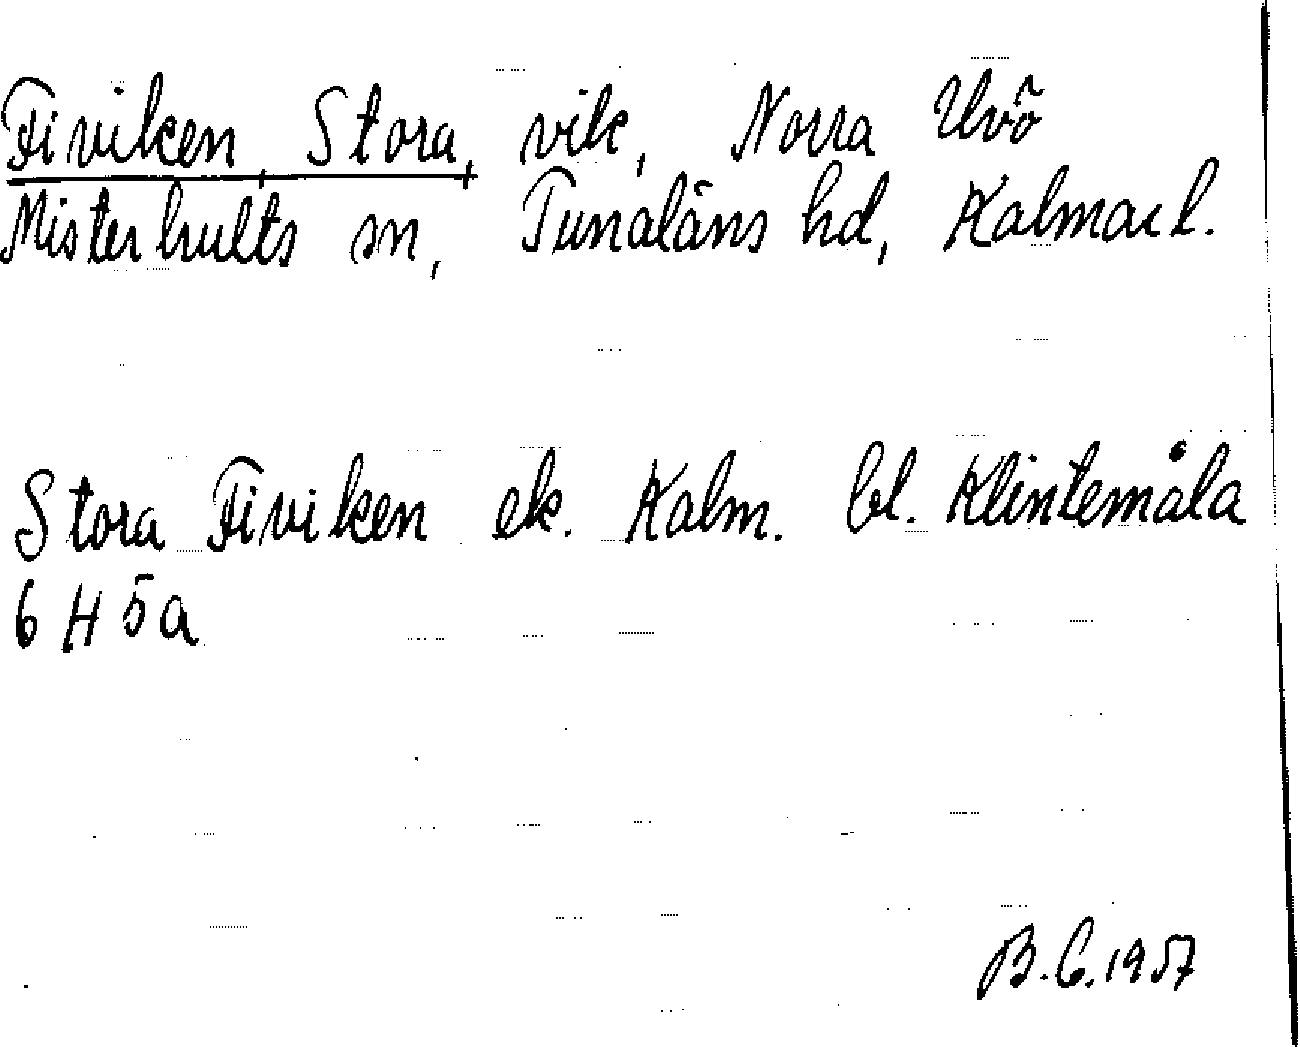 Fiviken, Stora, vik, Norra Uvö
Misterhults sn, Tunaläns hd, Kalmar l.
Stora Fiviken ek. Kalm. bl. Klintemåla
6 H 5a
B.C. 1957